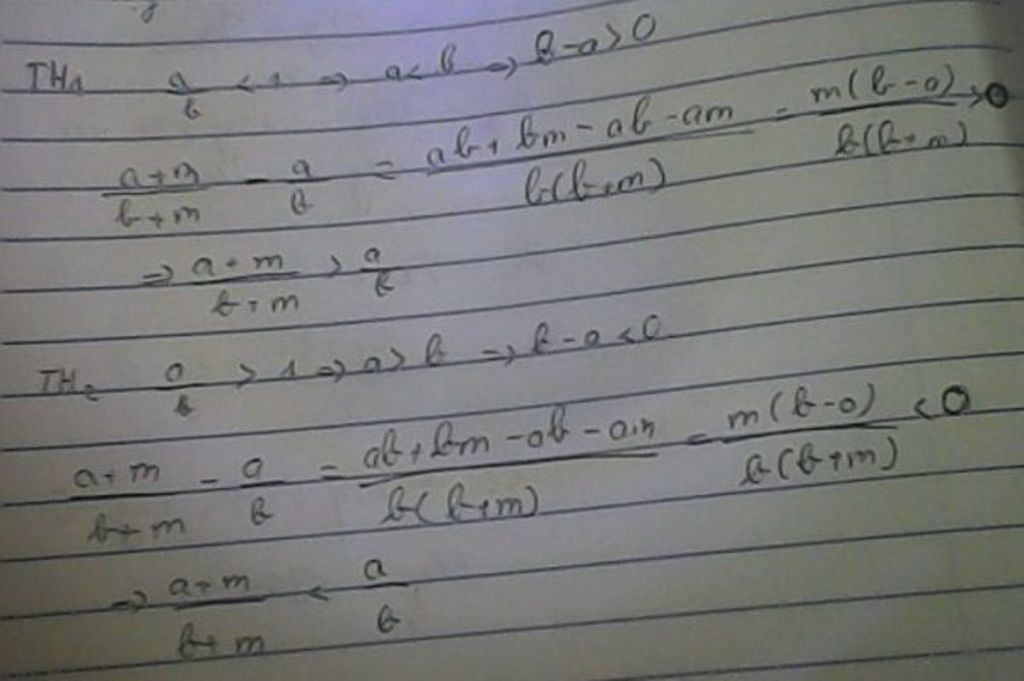 TH1 a/b < 1 => a < b => b - a > 0
(a + m)/(b + m) - a/b = (ab + bm - ab - am)/(b(b + m)) = m(b - a)/(b(b + m)) > 0
=> (a + m)/(b + m) > a/b
TH2 a/b > 1 => a > b => b - a < 0
(a + m)/(b + m) - a/b = (ab + bm - ab - am)/(b(b + m)) = m(b - a)/(b(b + m)) < 0
=> (a + m)/(b + m) < a/b